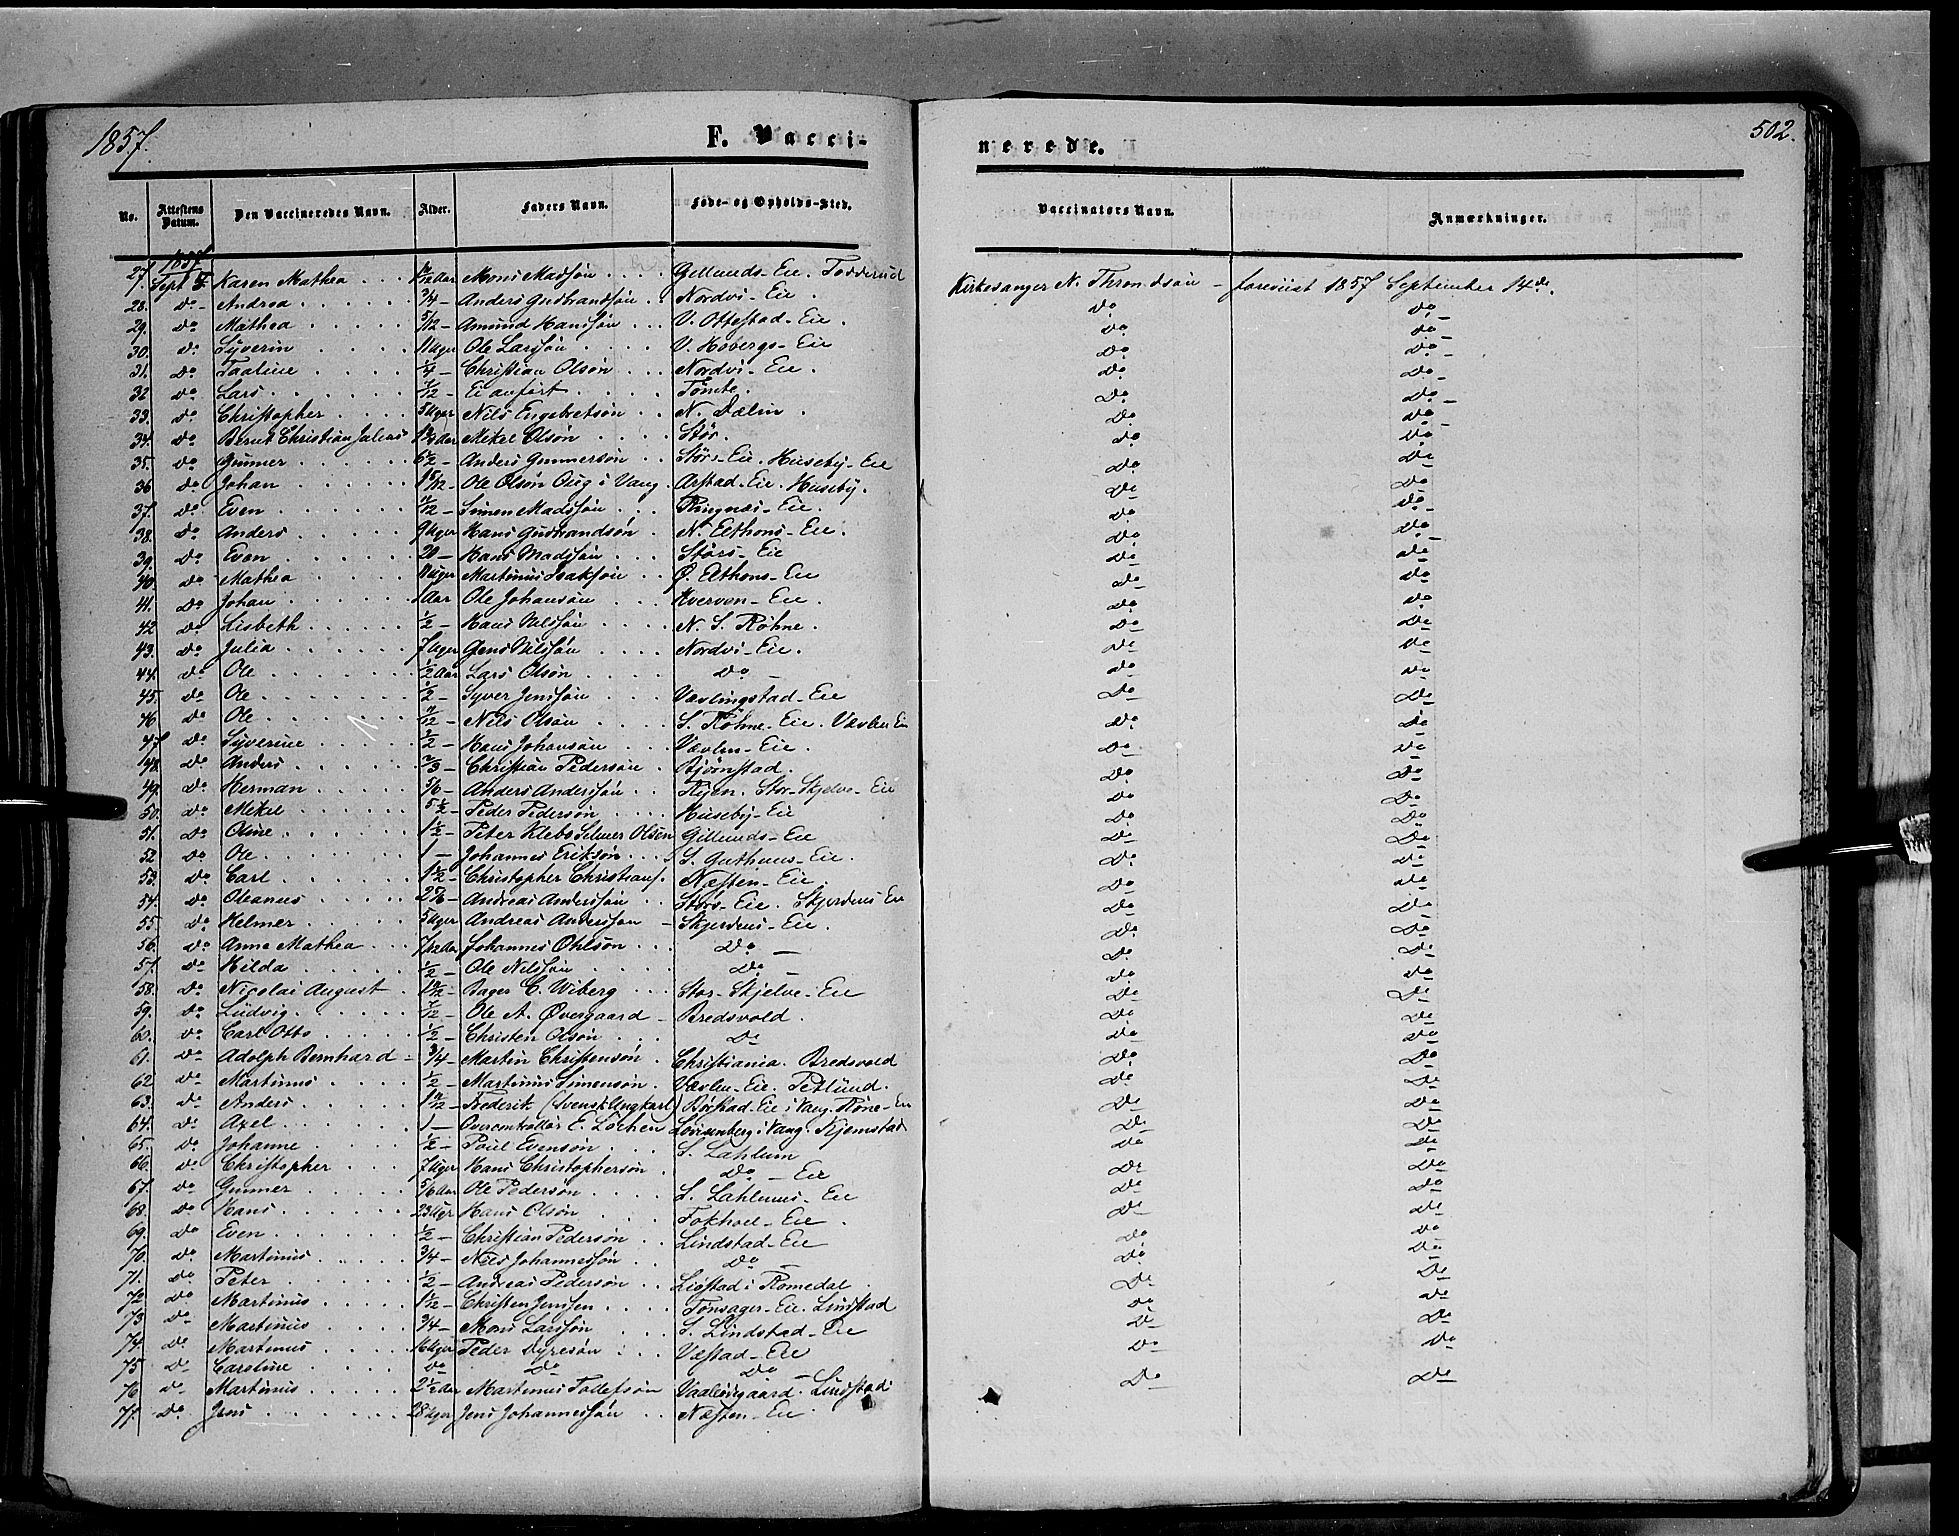 1857.
F. Vacci-
nerede.
502.
No. Attestens Datum. Den Vaccineredes Navn. Alder. Faders Navn. Føde- og Opholds-Sted. Vaccinators Navn. Anmærkninger.
1857
27. Sept Karen Mathea Mons Madsøn Gillunds-Eie. Kirkesanger N. Throndsøn - foreviist 1857 September 14de.
28. do Andrea 3/4 - Anders Gudbrandsøn Nordvi-Eie. do do
29. do Mathea 5/12 - Amund Hanssøn V. Ottestad-Eie. do do
30. do Syverin 11 Uger Ole Larssøn V. Hovergs-Eie do do
31. do Taaline 1/4 - Christian Olsøn Nordvi-Eie. do do
32 do Lars 7/12 - Ei anført Tomte. do do
33. do Christopher 5 Uger Nils Engebretsøn N. Dælin. do do
34. do Bernt Christian Julius Mikel Olsøn Stør. do do
35. do Gunner 6 1/2 - Anders Gunnersøn Størs-Eie. Huseby-Eie do do
36 do Johan Ole Olsøn i Vang. Arstad-Eie. Huseby. do do
37. do Even 7/12 - Simen Madssøn Rangnæs-Eie. do do
38. do Anders 9 Uger Hans Gudbrandsøn N. Eethons-Eie. do do
39. do Even 20 - Hans Madssøn Størs-Eie do do
40. do Mathea 11 Uger Martinus Isaksøn Ø. Eethons-Eie do do
41. do Johan 1 Aar Ole Johansøn Kverven-Eie. do do
42 do Lisbeth 1/2 - Hans Nilssøn N. S. Røhne. do do
43. do Julia 7 Uger Jens Nilssøn Nordvi-Eie. do do
44. do Ole 1/2 Aar Lars Olsøn do - do do
45. do Ole 1/2 - Syver Jenssøn Vævlingstad-Eie do do
46 do Ole 7/12 - Nils Olsøn S. Røhne-Eie. Vævlen Eie do do
47 do Syverine 1/2 - Hans Johansøn Vævlen-Eie. do do
48. do Anders 2/3 - Christian Pedersøn Bjørnstad. do do
49. do Herman 5/6 - Anders Anderssøn Stor-Skjelve-Eie do do
50. do Mikel 5 1/2 - Peder Pedersøn Huseby-Eie do do
51. do Oline 1 1/2 - Peter Klebo Selmer Olsen Gillunds-Eie do do
52 do Ole 1 - Johannes Eriksøn S. Guthuus-Eie. do do
53. do Carl 1 1/2 - Christopher Christians. Næsten-Eie. do do
54. do Oleanus Andreas Anderssøn Størs-Eie. Skjerdens Eie do do
55. do Helmer 5 Uger Andreas Anderssøn - Skjerdens-Eie. do do
56. do Anne Mathea 7/12 Aar Johannes Ohlsøn do - do do
57. do Hilda 1/2 - Ole Nilssøn do - do do
58. do Nicolai August Bager C. Wiberg Stor-Skjelve-Eie do do
59. do Ludvig 7/12 - Ole A. Øvergaard - Bredsvold. do do
60. do Carl Otto 1/2 - Christen Olsøn do do do
61. do Adolph Bernhard - 3/4 - Martin Christensøn. Christiania. Bredsvold do do
62 do Martinus 1/2 - Martinus Simensøn. Vævlen-Eie. Petlund. do do
63. do Anders Frederik (Svensk Ungkarl) Børstad-Eie i Vang. Røne-Eie do do
64. do Axel 1 - Overcontrollør E. Løchen Louisenberg i Vang. Kjemstad do do
65. do Johanne 1/2 - Poul Evensøn S. Lahlum do do
66. do Christopher 7 Uger Hans Christophersøn do - Eie do do
67. do Gunner 5/6 Aar Ole Pedersøn L. Lahlums-Eie do do
68. do Hans 23 Uger Hans Olsøn Fokhoel-Eie. do do
69. do Even 1/2 - Christian Pedersøn Lindstad-Eie do do
70. do Martinus 3/4 - Nils Johannessøn do - do do
71. do Peter 1/2 - Andreas Pedersøn Liøstad i Romedal. do do
72. do Martinus 1 1/2 - Christen Jenssen Tønsager-Eie. Lindstad do do
73 do Martinus 3/4 - Mons Larssøn S. Lindstad-Eie do do
74. do Martinus 16 Uger Peder Dyresøn Væstad-Eie do do
75 do Caroline do do do
76 do Martinus 2 1/2 Aar Martinus Tollefsøn Vaalersgaard. Lindstad do do
77. do Jens 28 Uger Jens Johannessøn Næsten-Eie